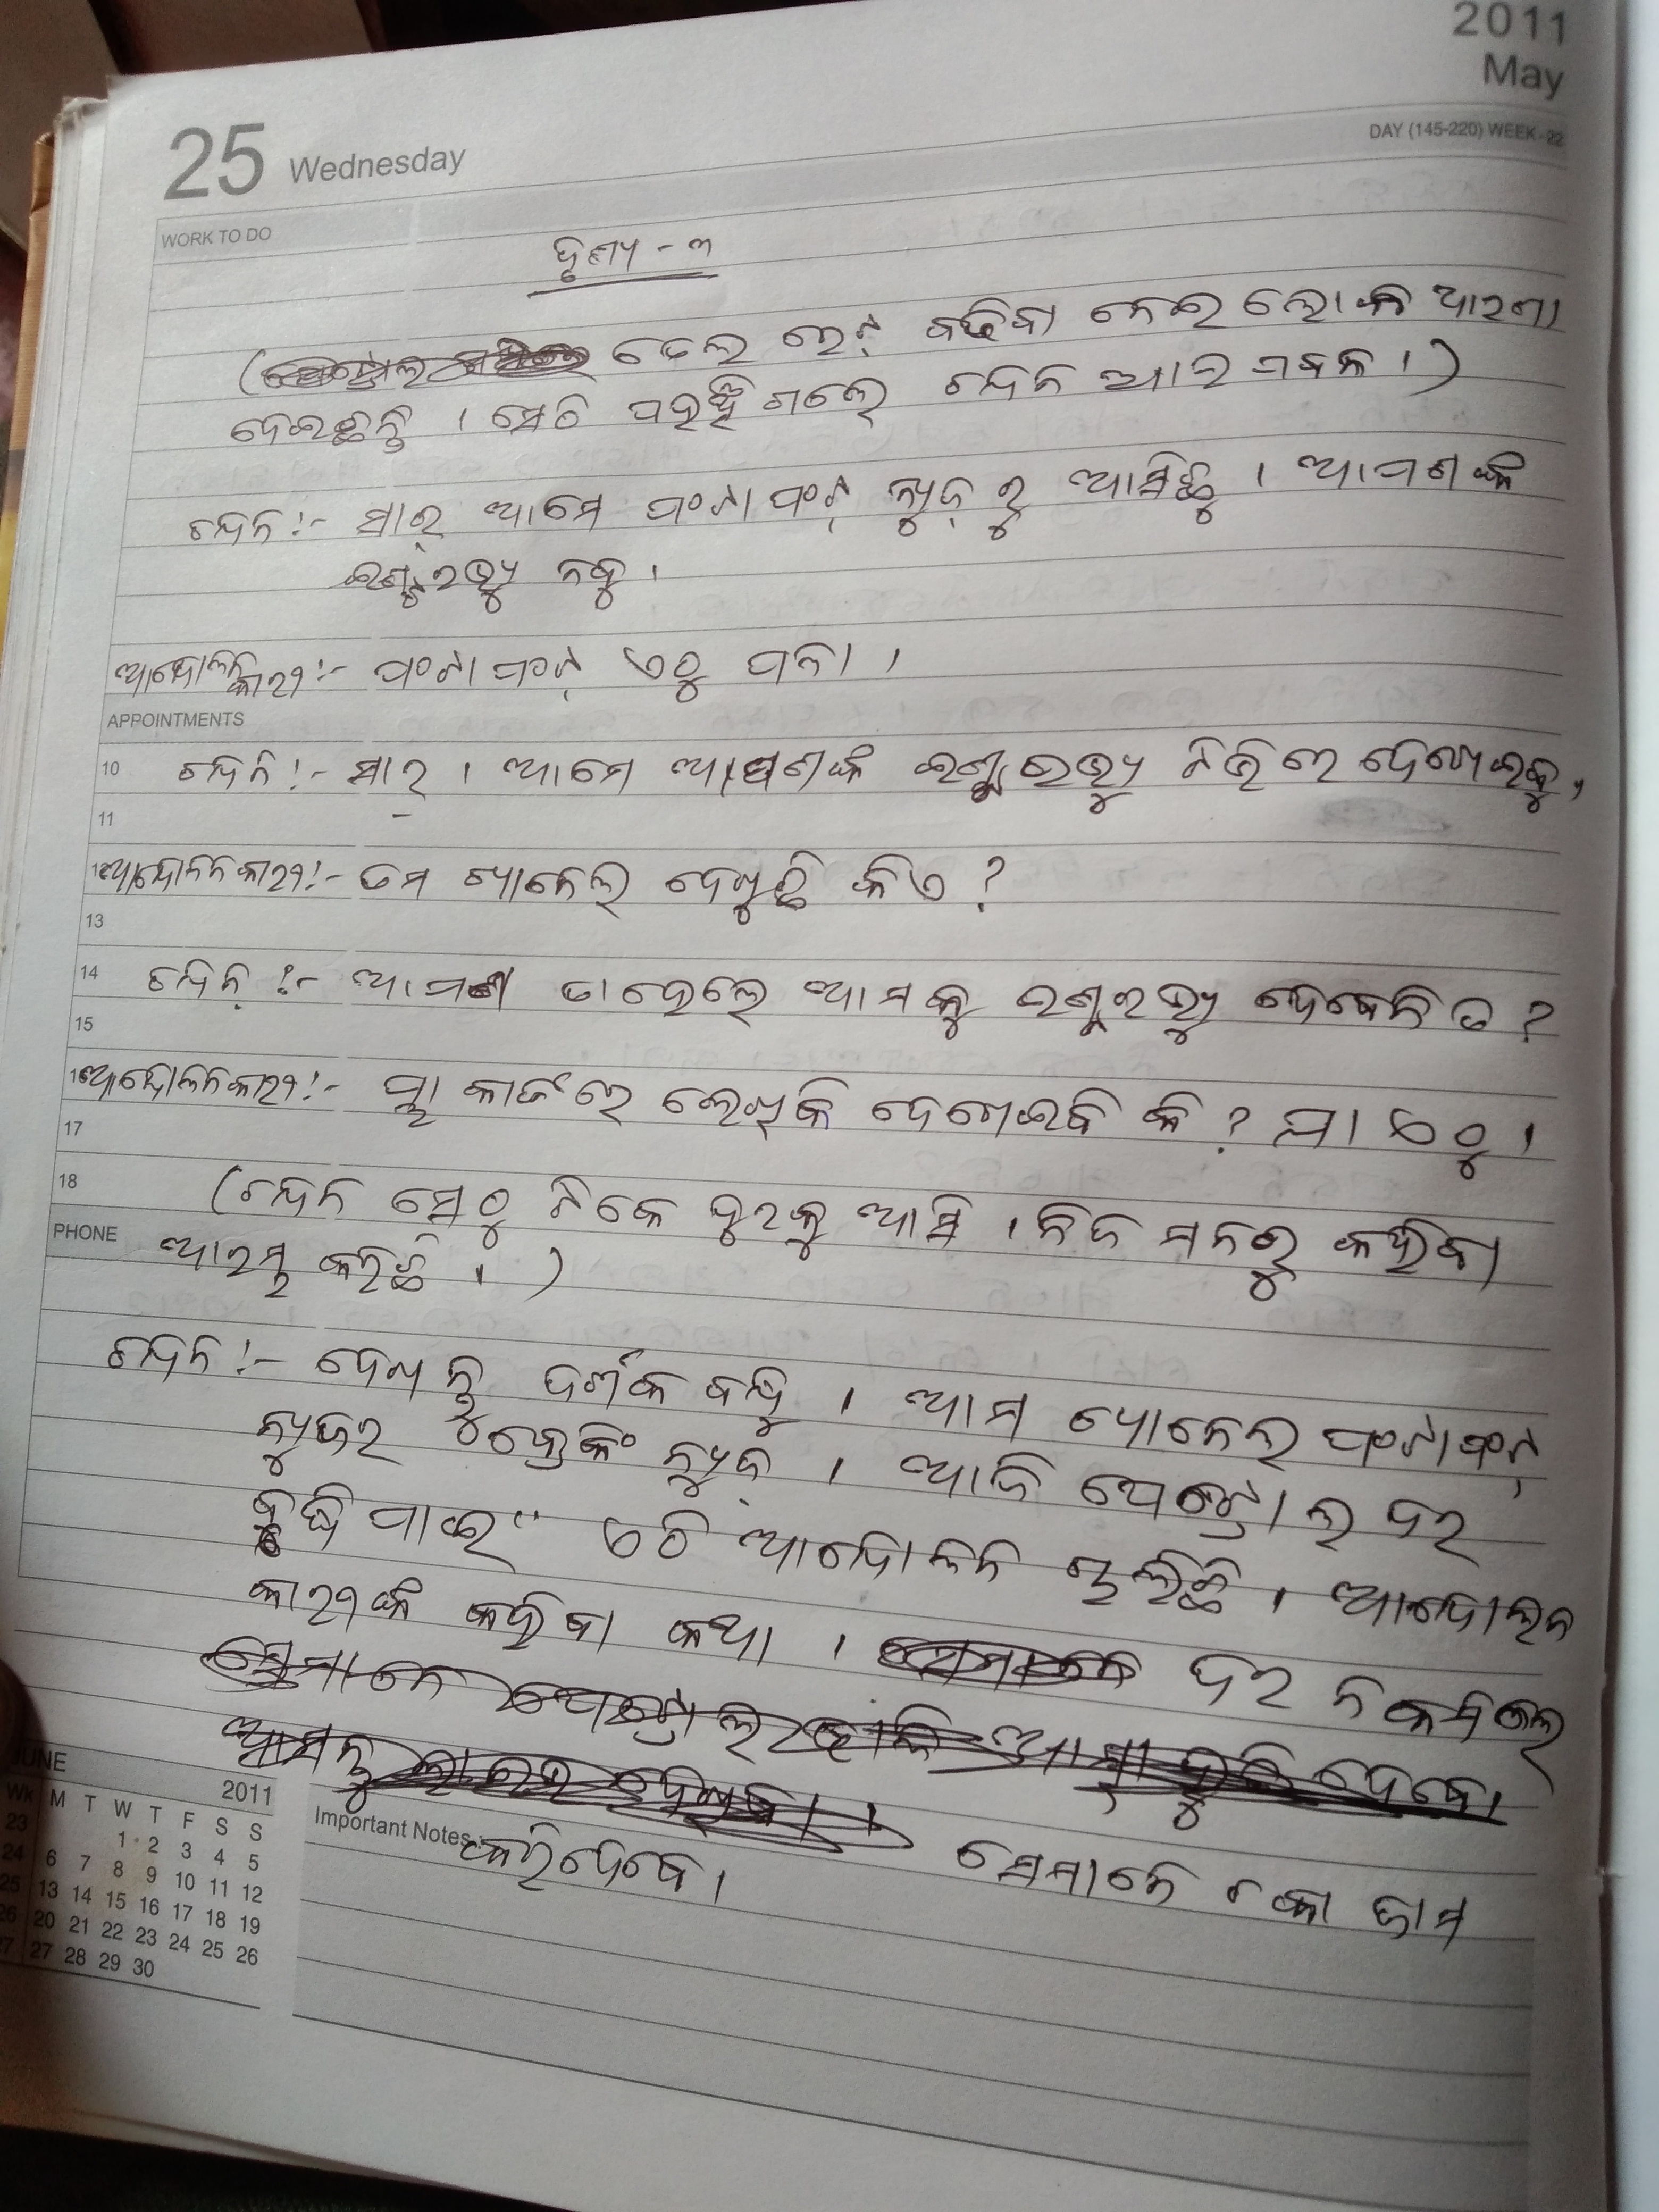 2011
May
25 Wednesday
DAY (145-220) WEEK -22
WORK TO DO
ଦୃଶ୍ୟ - ୩
( ତେଲ ରେଟ୍ ବଢିବା ନେଇ ଲୋକ ଧାରଣା
ଦେଇଛନ୍ତି । ସେଠି ପହଞ୍ଚିଗଲେ ଚନ୍ଦନ ଆର ।)
ଚନ୍ଦନ :- ସାର୍ ଆମେ ଫଟାଫଟ୍ ନ୍ୟୁଜ୍ ରୁ ଆସିଛୁ । ଆପଣଙ୍କ
ଇଣ୍ଟରଭ୍ୟୁ ନବୁ ।
ଆନ୍ଦୋଳନକାରୀ :- ଫଟାଫଟ୍ ଏଠୁ ପଳା ।
APPOINTMENTS
10 ଚନ୍ଦନ :- ସାର୍ । ଆମେ ଆପଣଙ୍କ ଇଣ୍ଟରଭ୍ୟୁ ଟିଭିରେ ଦେଖାଇବୁ,
11
12 ଆନ୍ଦୋଳନକାରୀ :- ତମ ଚ୍ୟାନେଲ୍ ଦେଖୁଛି କିଏ ?
13
14 ଚନ୍ଦନ୍ :- ଆପଣ ତାହେଲେ ଆମକୁ ଇଣ୍ଟରଭ୍ୟୁ ଦେବେନି ତ ?
15
16 ଆନ୍ଦୋଳନକାରୀ :- ପ୍ଲାକାର୍ଡରେ ଲେଖିକି ଦେଖେଇବି କି ? ଯା ଏଠୁ ।
17
18 (ଚନ୍ଦନ ସେଠୁ ଟିକେ ଦୁରକୁ ଆସି । ନିଜ ମନରୁ କହିବା
PHONE
ଆରମ୍ଭ କରିଛି । )
ଚନ୍ଦନ :- ଦେଖନ୍ତୁ ଦର୍ଶକ ବନ୍ଧୁ । ଆମ ଚ୍ୟାନେଲ ଫଟାଫଟ୍
ନ୍ୟୁଜର ବ୍ରେକିଂ ନ୍ୟୁଜ୍ । ଆଜି ପେଟ୍ରୋଲ ଦର
ବୃଦ୍ଧି ପାଇଁ ଏଠି ଆନ୍ଦୋଳନ ଚାଲିଛି । ଆନ୍ଦୋଳନ
କାରୀଙ୍କ କହିବା କଥା । ଦର ନ କମିଲେ
ସେମାନେ ପେଟ୍ରୋଲ ଦେବେ ।
ସେମାନେ ଚକା ଜାମ
କରିଦେବେ ।
JUNE 2011
Wk M T W T F S S
23 1 2 3 4 5
24 6 7 8 9 10 11 12
25 13 14 15 16 17 18 19
26 20 21 22 23 24 25 26
27 27 28 29 30
Important Notes :